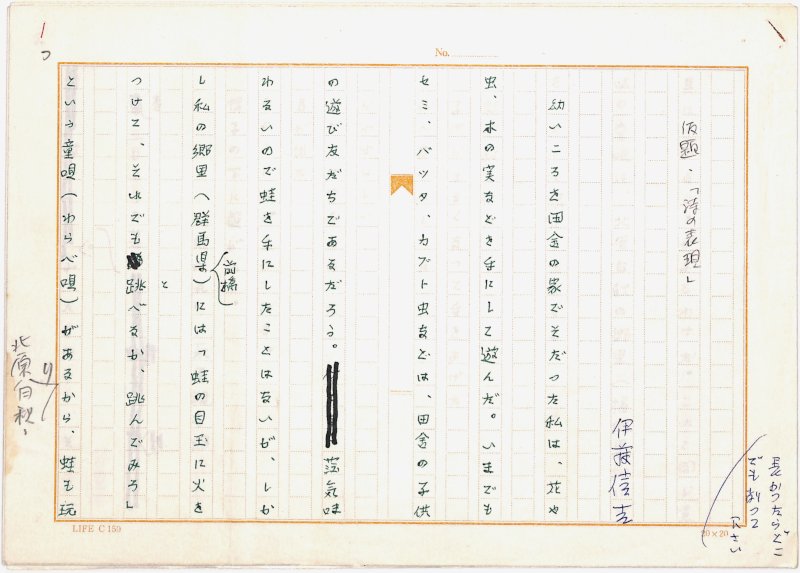 長かったらどこ
でも削って
下さい
No.
仮題、「詩の表現」
伊藤信吉
幼いころを田舎の家でそだった私は、花や
虫、木の実などを手にして遊んだ。いまでも
セミ、バッタ、カブト虫などは、田舎の子供
の遊び友だちであるだろう。薄気味
わるいので蛙を手にしたことはないが、しか
前橋
し私の郷里(群馬県)には「蛙の目玉に火を
と
つけて、それでも跳べるか、跳んでみろ」
という童唄(わらべ唄)があるから、蛙も玩
北原白秋、
LIFE C 159
20×20